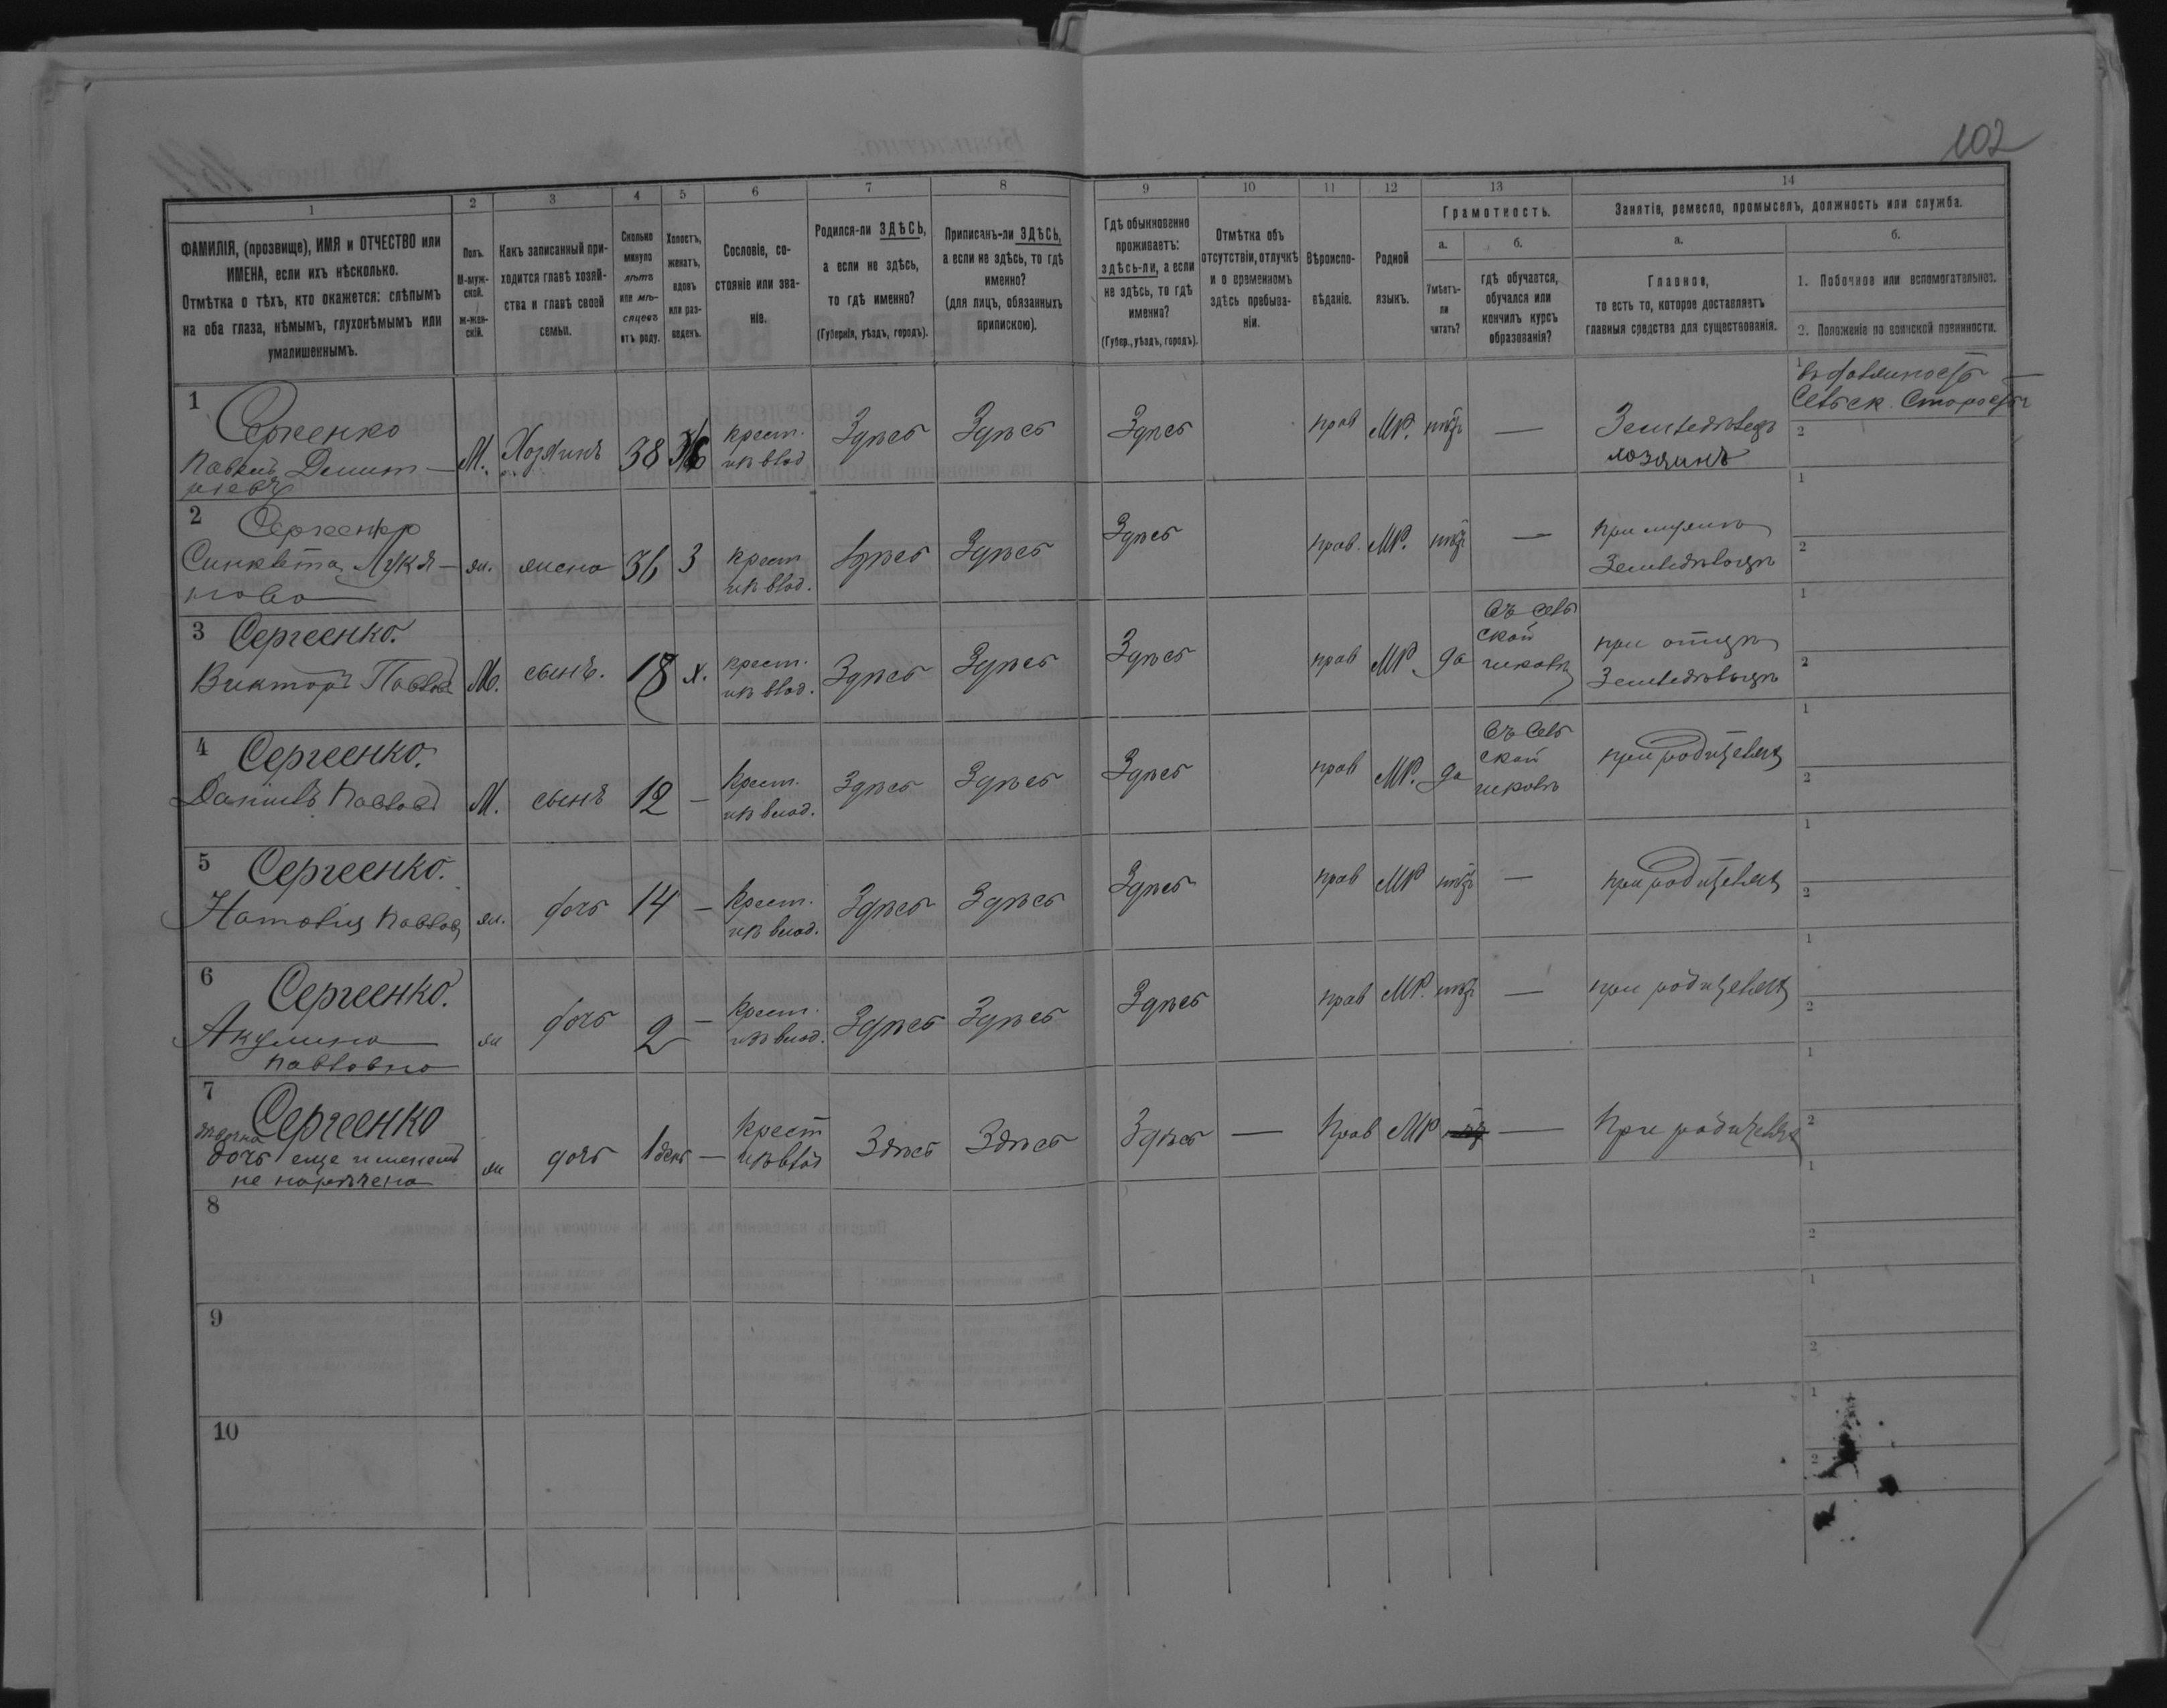 102
1 2 3 4 5 6 7 8 9 10 11 12 13 14
ФАМИЛІЯ, (прозвище), ИМЯ и ОТЧЕСТВО или
ИМЕНА, если ихъ нѣсколько.
Отмѣтка о тѣхъ, кто окажется: слѣпымъ
на оба глаза, нѣмымъ, глухонѣмымъ или
умалишеннымъ.
Полъ.
М-муж-
ской.
Ж-жен-
скій.
Какъ записанный при-
ходится главѣ хозяй-
ства и главѣ своей
семьи.
Сколько
минуло
лѣтъ
или мѣ-
сяцевъ
отъ роду.
Холостъ,
женатъ,
вдовъ
или раз-
веденъ.
Сословіе, со-
стояніе или зва-
ніе.
Родился-ли ЗДѢСЬ,
а если не здѣсь,
то гдѣ именно?
(Губернія, уѣздъ, городъ).
Приписанъ-ли ЗДѢСЬ,
а если не здѣсь, то гдѣ
именно?
(для лицъ, обязанныхъ
припискою).
Гдѣ обыкновенно
проживаетъ:
здѣсь-ли, а если
не здѣсь, то гдѣ
именно?
(Губер., уѣздъ, городъ).
Отмѣтка объ
отсутствіи, отлучкѣ
и о временномъ
здѣсь пребыва-
ніи.
Вѣроиспо-
вѣданіе.
Родной
языкъ.
Грамотность.
а.
Умѣетъ-
ли
читать?
б.
гдѣ обучается,
обучался или
кончилъ курсъ
образованія?
Занятіе, ремесло, промыселъ, должность или служба.
а.
Главное,
то есть то, которое доставляетъ
главныя средства для существованія.
б.
1. Побочное или вспомогательное.
2. Положеніе по воинской повинности.
1
Сергеенко
Павелъ Дмит-
ріевъ
М. Хозяинъ 38 крест. Здѣсь Здѣсь Здѣсь прав МР. нѣтъ — Земледѣлецъ
хозяинъ
1 въ должности
Сельск. Старосты
2
2 Сергеенко
Лукья-
нова
ж. жена 36 З крест Здѣсь Здѣсь Здѣсь прав. МР. нѣтъ — при мужѣ
Земледѣлецъ
1
2
3 Сергеенко.
Викторъ Павлов
М. сынъ. 18 х. крест. Здѣсь Здѣсь Здѣсь прав МР. да
въ сель
ской
школѣ
при отцѣ
Земледѣлецъ
1
2
4 Сергеенко.
Даніилъ Павлов
М. сынъ 12 — Крест. Здѣсь Здѣсь Здѣсь прав МР. да
въ сель
ской
школѣ
при родителях
1
2
5 Сергеенко.
Наталія Павлов
ж. дочь 14 — Крест. Здѣсь Здѣсь Здѣсь прав МР нѣтъ — при родителях
1
2
6 Сергеенко.
Акулина
Павловна
ж дочь 2 — Крест. Здѣсь Здѣсь Здѣсь прав МР. нѣтъ — при родителях
1
2
7 Сергеенко
дочь еще именемъ
не наречена
ж дочь 1 день — Крест Здѣсь Здѣсь Здѣсь — Прав МР — При родителях
1
2
8
1
2
9
1
2
10
1
2